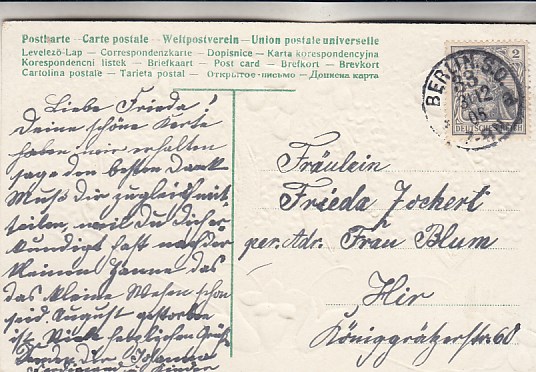 Postkarte — Carte postale — Weltpostverein — Union postale universelle
Levelező-Lap — Correspondenzkarte — Dopisnice — Karta korespondencyjna
Korespondencni listek — Briefkaart — Post card — Brefkort — Brevkort
Cartolina postale — Tarjeta postal — Открытое письмо — Дописна карта
BERLIN S.O.
33
3.12
05
2
DEUTSCHES REICH
Liebe Frieda!
Deine schöne Karte
haben wir erhalten
sage den besten Dank
Muß dir zugleich mit
teilen, weil du dich er
kundigst hast nach der
kleinen Hanne das
das kleine Wesen schon
seid August gestorben
ist. Viele herzlichen Grüße
senden Dir Johanna
Ferdinand u. Kinder
Fräulein
Frieda Jockerl
per. Adr. Frau Blum
Hir
Königgrätzerstr. 60